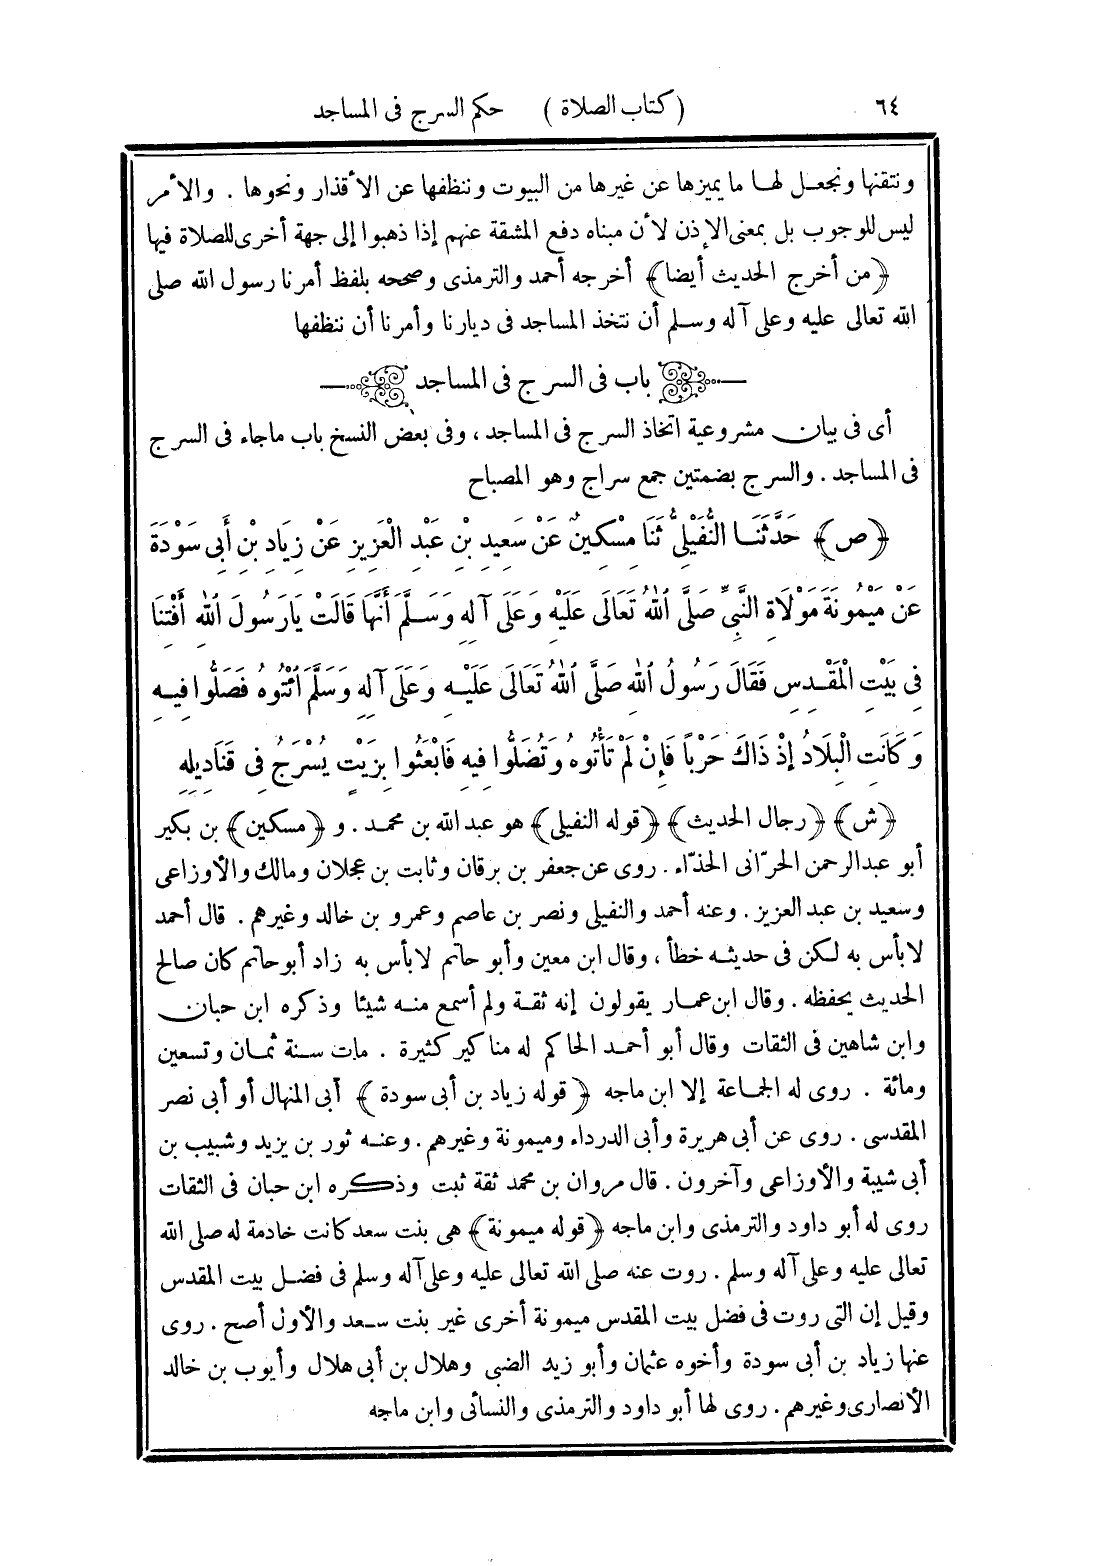 ٦٤ (كتاب الصلاة) حكم السرج فى المساجد
ونتقنها ونجعل لها ما يميزها عن غيرها من البيوت وننظفها عن الأقذار ونحوها . والأمر
ليس للوجوب بل بمعنى الإذن لأن مبناه دفع المشقة عنهم إذا ذهبوا إلى جهة أخرى للصلاة فيها
﴿من أخرج الحديث أيضا﴾ أخرجه أحمد والترمذى وصححه بلفظ أمرنا رسول الله صلى
الله تعالى عليه وعلى آله وسلم أن نتخذ المساجد فى ديارنا وأمرنا أن ننظفها
باب فى السرج فى المساجد
أى فى بيان مشروعية اتخاذ السرج فى المساجد ، وفى بعض النسخ باب ماجاء فى السرج
فى المساجد . والسرج بضمتين جمع سراج وهو المصباح
﴿ص﴾ حَدَّثَنَا النُّفَيْلِىُّ ثَنَا مِسْكِينٌ عَنْ سَعِيدِ بْنِ عَبْدِ الْعَزِيزِ عَنْ زِيَادِ بْنِ أَبِى سَوْدَةَ
عَنْ مَيْمُونَةَ مَوْلَاةِ النَّبِىِّ صَلَّى اللهُ تَعَالَى عَلَيْهِ وَعَلَى آلِهِ وَسَلَّمَ أَنَّهَا قَالَتْ يَارَسُولَ اللهِ أَفْتِنَا
فِى بَيْتِ الْمَقْدِسِ فَقَالَ رَسُولُ اللهِ صَلَّى اللهُ تَعَالَى عَلَيْهِ وَعَلَى آلِهِ وَسَلَّمَ ائْتُوهُ فَصَلُّوا فِيهِ
وَكَانَتِ الْبِلَادُ إِذْ ذَاكَ حَرْبًا فَإِنْ لَمْ تَأْتُوهُ وَتُصَلُّوا فِيهِ فَابْعَثُوا بِزَيْتٍ يُسْرَجُ فِى قَنَادِيلِهِ
﴿ش﴾ ﴿رجال الحديث﴾ ﴿قوله النفيلى﴾ هو عبد الله بن محمد . و ﴿مسكين﴾ بن بكير
أبو عبد الرحمن الحرّانى الحذّاء . روى عن جعفر بن برقان وثابت بن عجلان ومالك والأوزاعى
وسعيد بن عبد العزيز . وعنه أحمد والنفيلى ونصر بن عاصم وعمرو بن خالد وغيرهم . قال أحمد
لابأس به لكن فى حديثه خطأ ، وقال ابن معين وأبو حاتم لابأس به زاد أبو حاتم كان صالح
الحديث يحفظه . وقال ابن عمار يقولون إنه ثقة ولم أسمع منه شيئا وذكره ابن حبان
وابن شاهين فى الثقات وقال أبو أحمد الحاكم له مناكير كثيرة . مات سنة ثمان وتسعين
ومائة . روى له الجماعة إلا ابن ماجه ﴿قوله زياد بن أبى سودة﴾ أبى المنهال أو أبى نصر
المقدسى . روى عن أبى هريرة وأبى الدرداء وميمونة وغيرهم . وعنه ثور بن يزيد وشبيب بن
أبى شيبة والأوزاعى وآخرون . قال مروان بن محمد ثقة ثبت وذكره ابن حبان فى الثقات
روى له أبو داود والترمذى وابن ماجه ﴿قوله ميمونة﴾ هى بنت سعد كانت خادمة له صلى الله
تعالى عليه وعلى آله وسلم . روت عنه صلى الله تعالى عليه وعلى آله وسلم فى فضل بيت المقدس
وقيل إن التى روت فى فضل بيت المقدس ميمونة أخرى غير بنت سعد والأول أصح . روى
عنها زياد بن أبى سودة وأخوه عثمان وأبو زيد الضبى وهلال بن أبى هلال وأيوب بن خالد
الأنصارى وغيرهم . روى لها أبو داود والترمذى والنسائى وابن ماجه